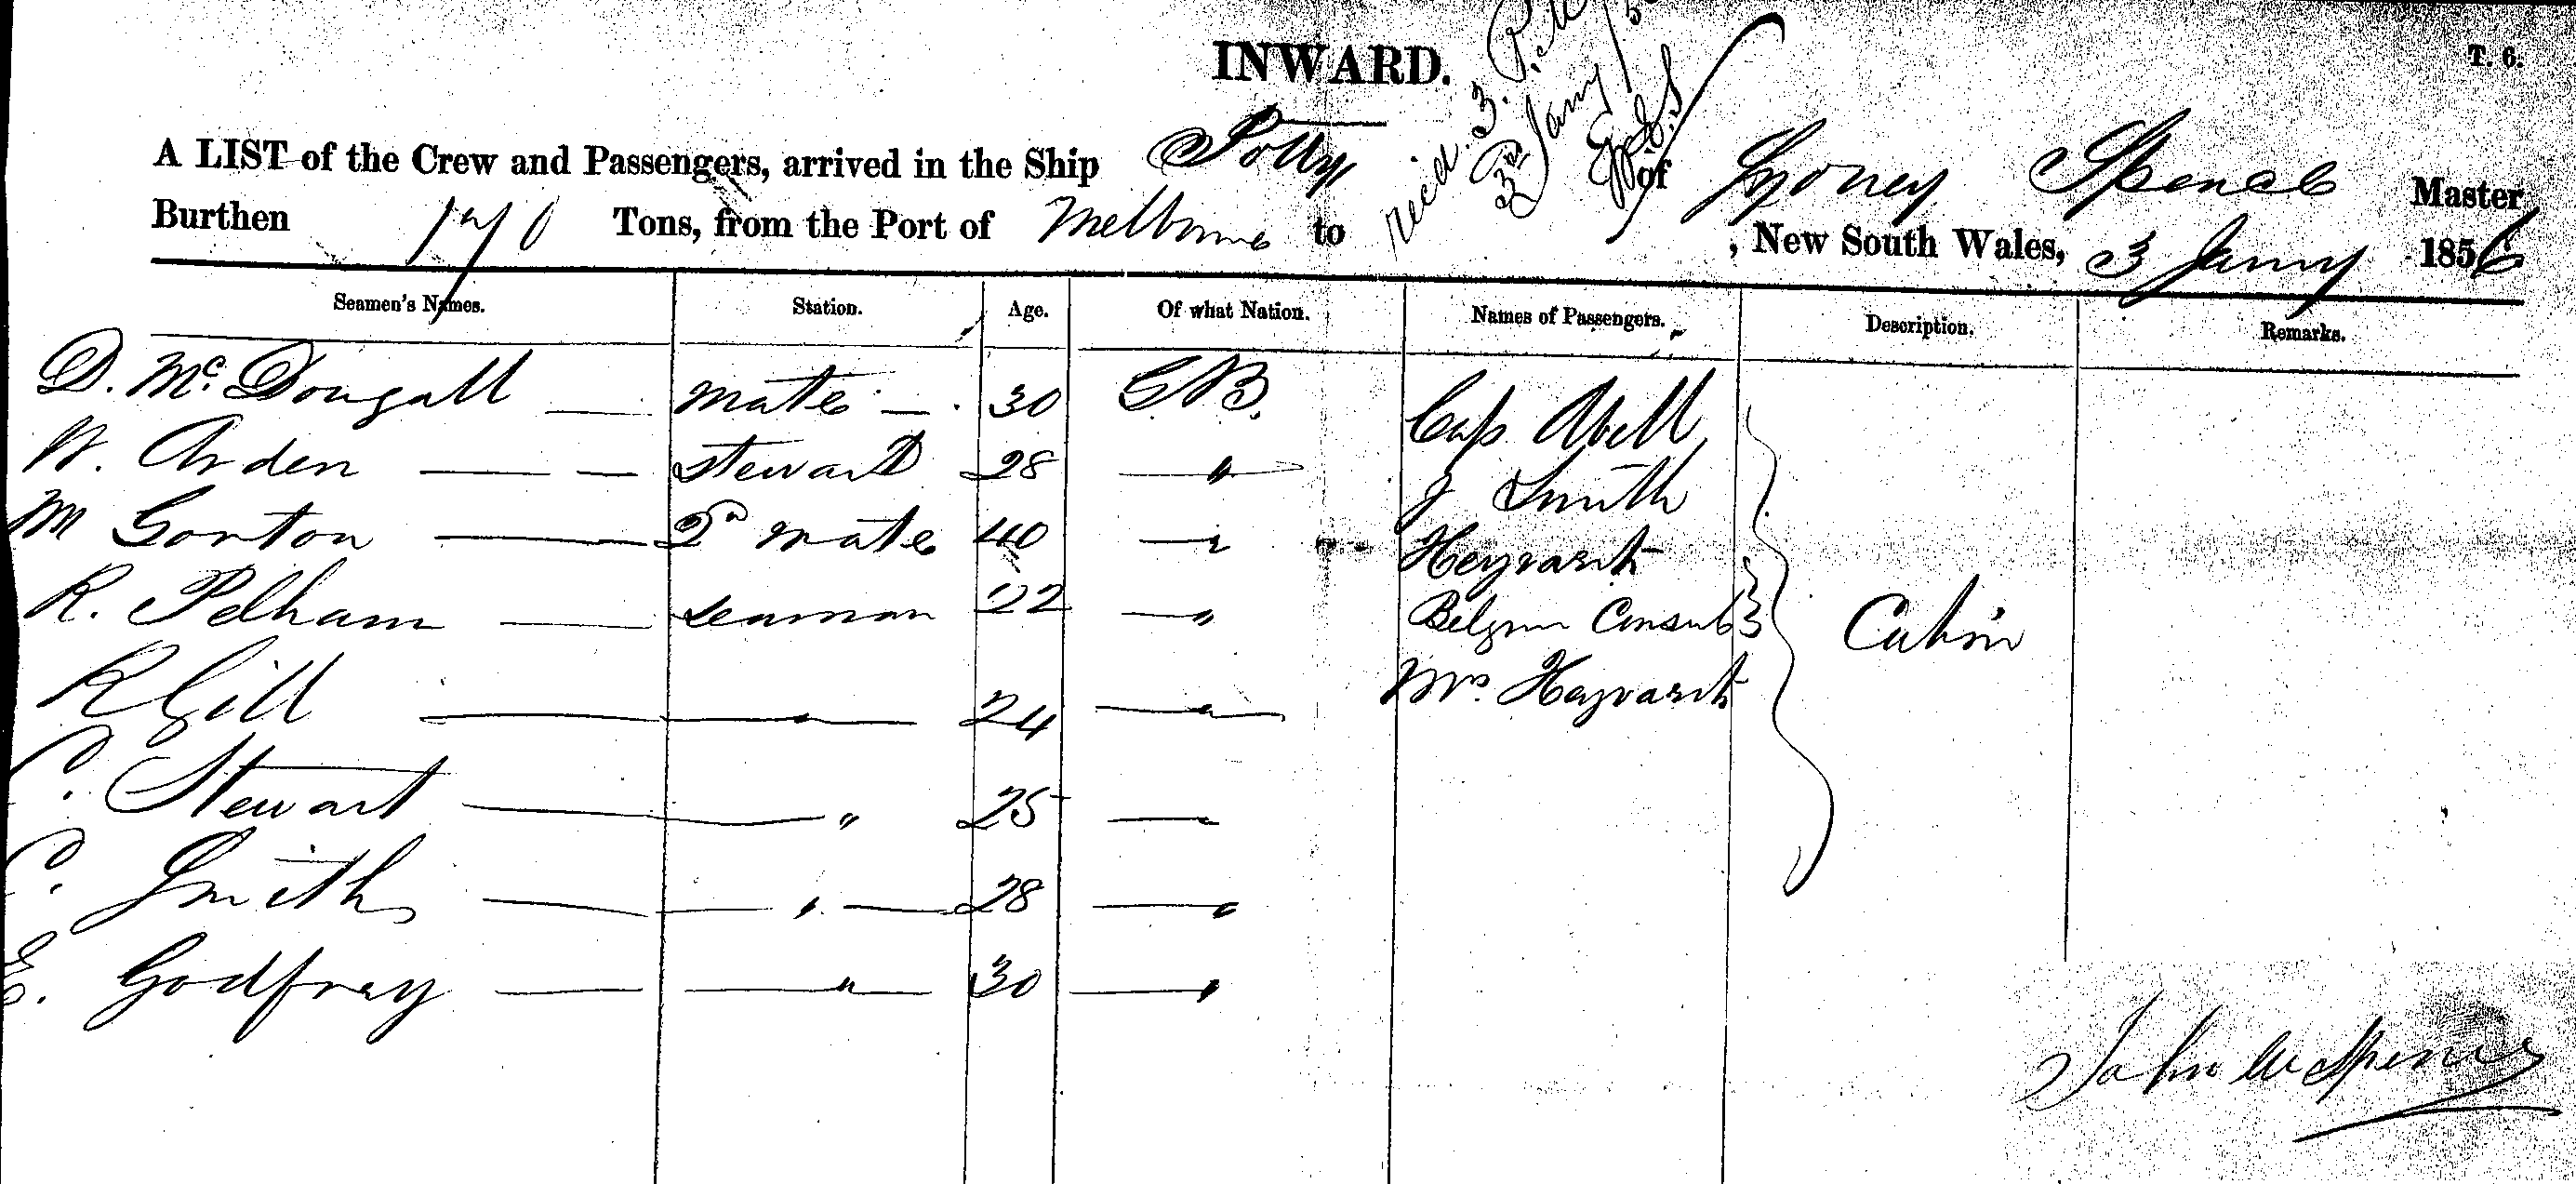 INWARD.
T. 6.
Recd. 3.
3rd Jany
A LIST of the Crew and Passengers, arrived in the Ship Polly of Sydney Spence Master
Burthen Tons, from the Port of Melbourne to , New South Wales, 3 Jany 1856
Seamen's Names. Station. Age. Of what Nation. Names of Passengers. Description. Remarks.
D. McDougall — mate — 30 GB. Cap Abell
W. Arden — — Steward 28 — " J Smith
M Gorton — 2d mate 40 — "
R. Pelham — seaman 22 — " Belgian Consul Cabin
R Gill — " — 24 — " — Mrs.
C. Stewart — " 25 —
C. Smith — " — 28 — "
E. Godfray — " — 30 — "
John Spence